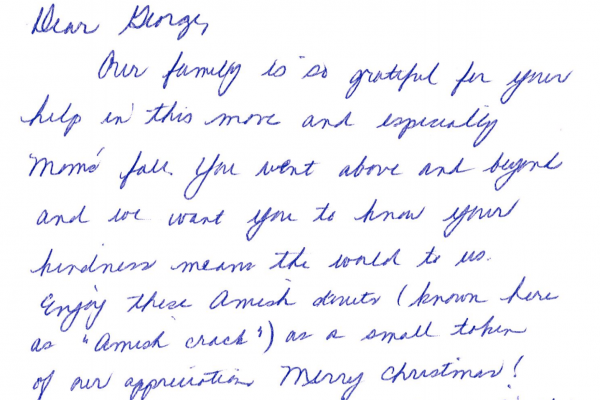 Dear George,
Our family is so grateful for your
help in this move and especially
Mom's fall. You went above and beyond
and we want you to know your
kindness means the world to us.
Enjoy these Amish donuts (known here
as "Amish crack") as a small token
of our appreciation. Merry Christmas!